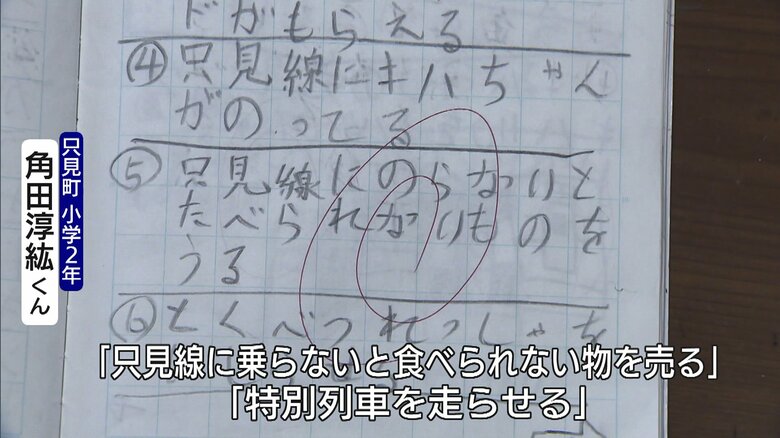 ドがもらえる
④只見線にキハちゃん
がのってる
⑤只見線にのらないと
たべられないものを
うる
⑥とくべつれっしゃを
只見町 小学2年
角田淳紘くん
「只見線に乗らないと食べられない物を売る」
「特別列車を走らせる」